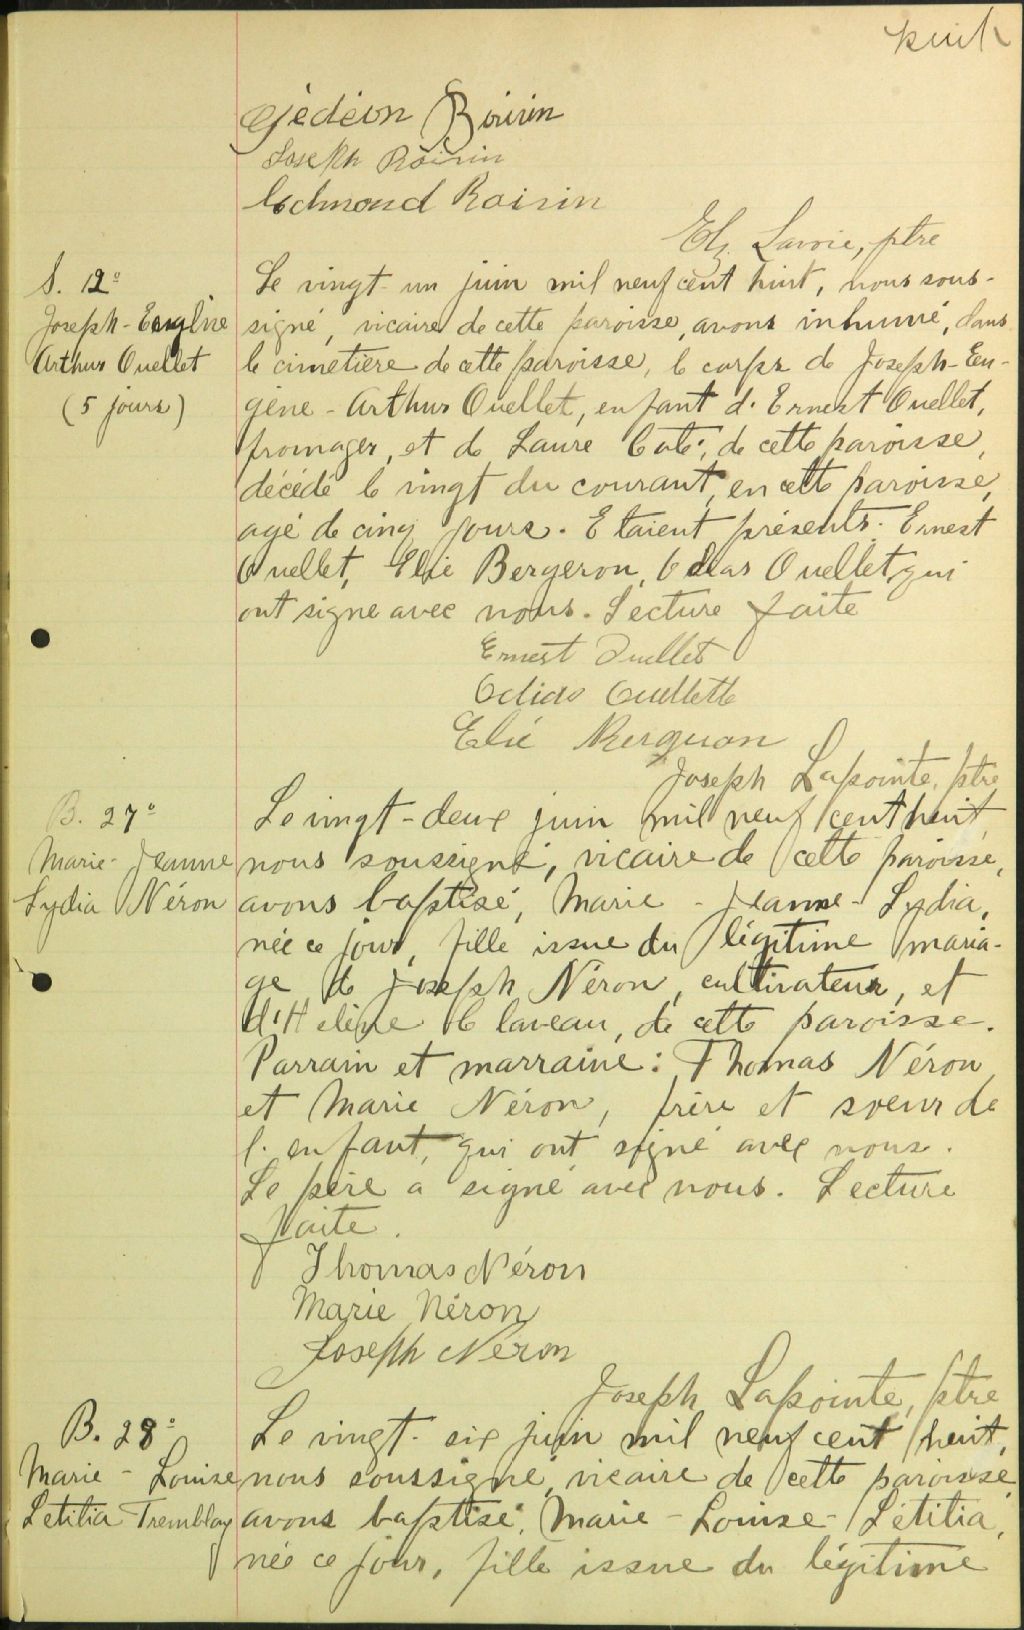 huit
Gédéon Boivin
Joseph Boivin
Edmond Boivin
Elz. Lavoie, ptre
S. 12°
Joseph-Eugène
Arthur Ouellet
(5 jours)
Le vingt-un juin mil neuf cent huit, nous sous-
signé, vicaire de cette paroisse, avons inhumé, dans
le cimetière de cette paroisse, le corps de Joseph-Eu-
gène-Arthur Ouellet, enfant d'Ernest Ouellet,
fromager, et de Laure Coté, de cette paroisse,
décédé le vingt du courant, en cette paroisse,
agé de cinq jours. Etaient présents: Ernest
Ouellet, Elie Bergeron, Ouellet, qui
ont signé avec nous. Lecture faite
Ernest Ouellet
Ouellette
Elié Bergeron
Joseph Lapointe, ptre
B. 27°
Marie-Jeanne
Lydia Néron
Le vingt-deux juin mil neuf cent huit,
nous soussigné, vicaire de cette paroisse,
avons baptisé, Marie-Jeanne-Lydia,
née ce jour, fille issue du légitime maria-
ge de Joseph Néron, cultivateur, et
d'Hélène Claveau, de cette paroisse.
Parrain et marraine: Thomas Néron
et Marie Néron, frère et soeur de
l'enfant, qui ont signé avec nous.
Le père a signé avec nous. Lecture
faite.
Thomas Néron
Marie Néron
Joseph Néron
Joseph Lapointe, ptre
B. 28°
Marie-Louise
Létitia Tremblay
Le vingt-six juin mil neuf cent huit,
nous soussigné, vicaire de cette paroisse
avons baptisé, Marie-Louise-Létitia,
née ce jour, fille issue du légitime